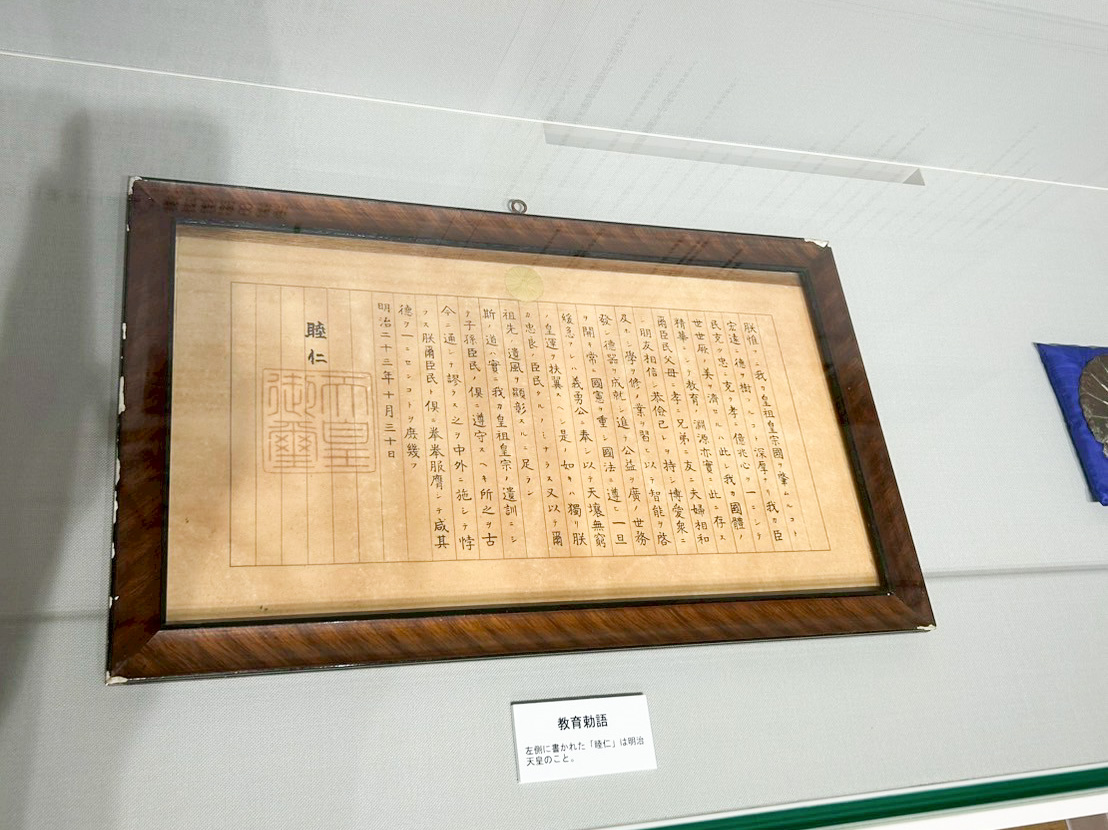 朕惟フニ我カ皇祖皇宗國ヲ肇ムルコト
宏遠ニ德ヲ樹ツルコト深厚ナリ我カ臣
民克ク忠ニ克ク孝ニ億兆心ヲ一ニシテ
世世厥ノ美ヲ濟セルハ此レ我カ國體ノ
精華ニシテ教育ノ淵源亦實ニ此ニ存ス
爾臣民父母ニ孝ニ兄弟ニ友ニ夫婦相和
シ朋友相信シ恭儉己レヲ持シ博愛衆ニ
及ホシ學ヲ修メ業ヲ習ヒ以テ智能ヲ啓
發シ德器ヲ成就シ進テ公益ヲ廣メ世務
ヲ開キ常ニ國憲ヲ重シ國法ニ遵ヒ一旦
緩急アレハ義勇公ニ奉シ以テ天壤無窮
ノ皇運ヲ扶翼スヘシ是ノ如キハ獨リ朕
カ忠良ノ臣民タルノミナラス又以テ爾
祖先ノ遺風ヲ顯彰スルニ足ラン
斯ノ道ハ實ニ我カ皇祖皇宗ノ遺訓ニシ
テ子孫臣民ノ俱ニ遵守スヘキ所之ヲ古
今ニ通シテ謬ラス之ヲ中外ニ施シテ悖
ラス朕爾臣民ト俱ニ拳拳服膺シテ咸其
德ヲ一ニセンコトヲ庶幾フ
明治二十三年十月三十日
睦仁
天皇
御璽
教育勅語
左側に書かれた「睦仁」は明治
天皇のこと。